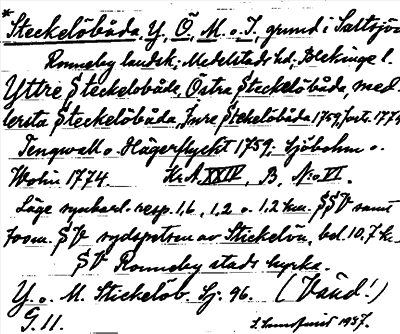 * Steckelöbåda, Y, Ö, M. o. I, grund i Saltsjön
Ronneby landsk; Medelstads hd; Blekinge l.
Yttre Steckelobåda, Östra Steckelöbåda, Med-
lersta Steckelöbåda, Inre Stekelöbåda 1759, forts. 1774
Tengwall o. Hägerflycht 1759; Sjöbohm o.
Wohn 1774. Kr. A. XXIV, B, No VI.
Läge resp. 1,6, 1,2 o. 1,2 km. SSV samt
700 m. SV sydspetsen av Stickelön, bel. 10,7 k.
SV Ronneby stads kyrka.
Y. o. M. Stickelöb. Sj. 96. (Vänd!)
G. 11. 1937.